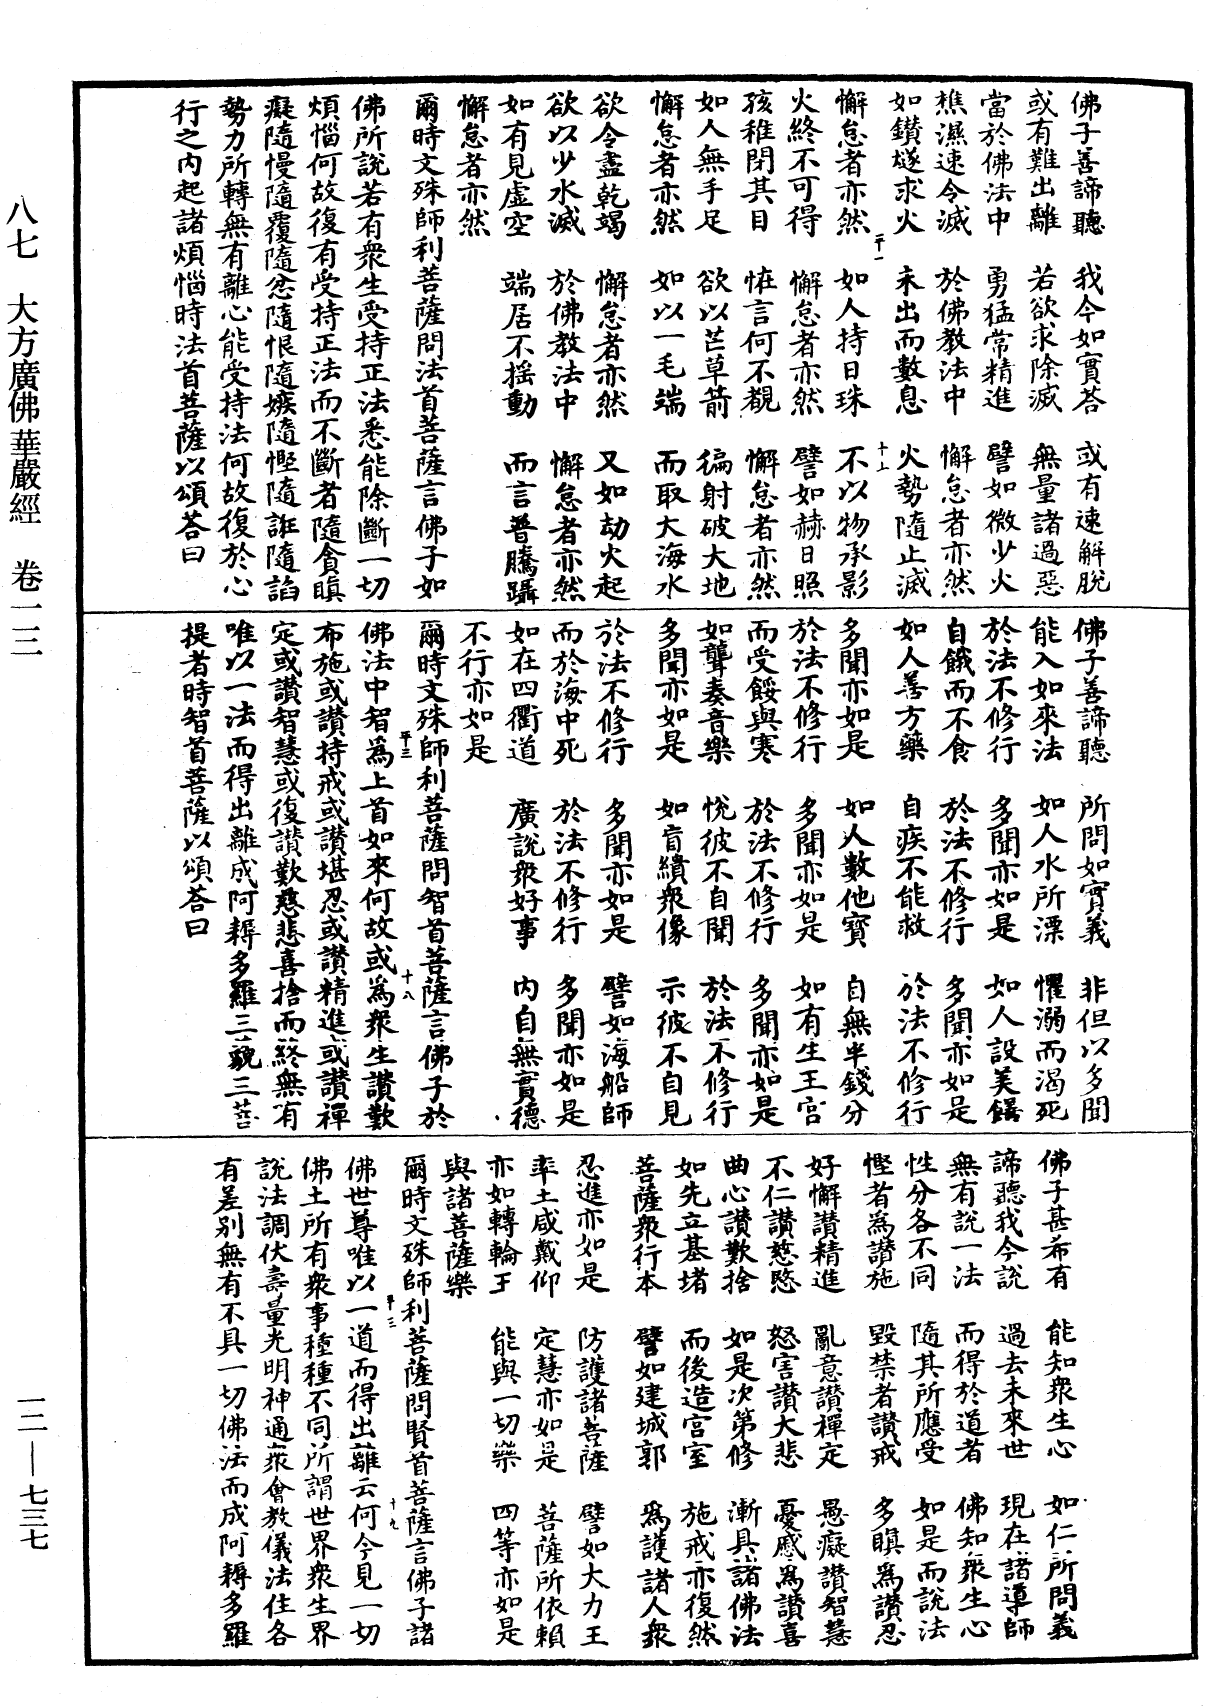 佛子善諦聽　我今如實荅　或有速解脫
或有難出離　若欲求除滅　無量諸過惡
當於佛法中　勇猛常精進　譬如微少火
樵濕速令滅　於佛教法中　懈怠者亦然
如鑽燧求火　未出而數息　火勢隨止滅
懈怠者亦然　如人持日珠　不以物承影
火終不可得　懈怠者亦然　譬如赫日照
孩稚閉其目　恠言何不覩　懈怠者亦然
如人無手足　欲以芒草箭　徧射破大地
懈怠者亦然　如以一毛端　而取大海水
欲令盡乾竭　懈怠者亦然　又如劫火起
欲以少水滅　於佛教法中　懈怠者亦然
如有見虛空　端居不搖動　而言普騰躡
懈怠者亦然
爾時文殊師利菩薩問法首菩薩言佛子如
佛所說若有衆生受持正法悉能除斷一切
煩惱何故復有受持正法而不斷者隨貪瞋
癡隨慢隨覆隨忿隨恨隨嫉隨慳隨誑隨諂
勢力所轉無有離心能受持法何故復於心
行之內起諸煩惱時法首菩薩以頌荅曰
佛子善諦聽　所問如實義　非但以多聞
能入如來法　如人水所漂　懼溺而渴死
於法不修行　多聞亦如是　如人設美饍
自餓而不食　於法不修行　多聞亦如是
如人善方藥　自疾不能救　於法不修行
多聞亦如是　如人數他寶　自無半錢分
於法不修行　多聞亦如是　如有生王宮
而受餒與寒　於法不修行　多聞亦如是
如聾奏音樂　悅彼不自聞　於法不修行
多聞亦如是　如盲繢衆像　示彼不自見
於法不修行　多聞亦如是　譬如海船師
而於海中死　於法不修行　多聞亦如是
如在四衢道　廣說衆好事　內自無實德
不行亦如是
爾時文殊師利菩薩問智首菩薩言佛子於
佛法中智爲上首如來何故或爲衆生讚歎
布施或讚持戒或讚堪忍或讚精進或讚禪
定或讚智慧或復讚歎慈悲喜捨而終無有
唯以一法而得出離成阿耨多羅三藐三菩
提者時智首菩薩以頌荅曰
佛子甚希有　能知衆生心　如仁所問義
諦聽我今說　過去未來世　現在諸導師
無有說一法　而得於道者　佛知衆生心
性分各不同　隨其所應受　如是而說法
慳者爲讚施　毀禁者讚戒　多瞋爲讚忍
好懈讚精進　亂意讚禪定　愚癡讚智慧
不仁讚慈愍　怒害讚大悲　憂慼爲讚喜
曲心讚歎捨　如是次第修　漸具諸佛法
如先立基堵　而後造宮室　施戒亦復然
菩薩衆行本　譬如建城郭　爲護諸人衆
忍進亦如是　防護諸菩薩　譬如大力王
率土咸戴仰　定慧亦如是　菩薩所依賴
亦如轉輪王　能與一切樂　四等亦如是
與諸菩薩樂
爾時文殊師利菩薩問賢首菩薩言佛子諸
佛世尊唯以一道而得出離云何今見一切
佛土所有衆事種種不同所謂世界衆生界
說法調伏壽量光明神通衆會教儀法住各
有差別無有不具一切佛法而成阿耨多羅
八七　大方廣佛華嚴經　卷一三
一二—七三七